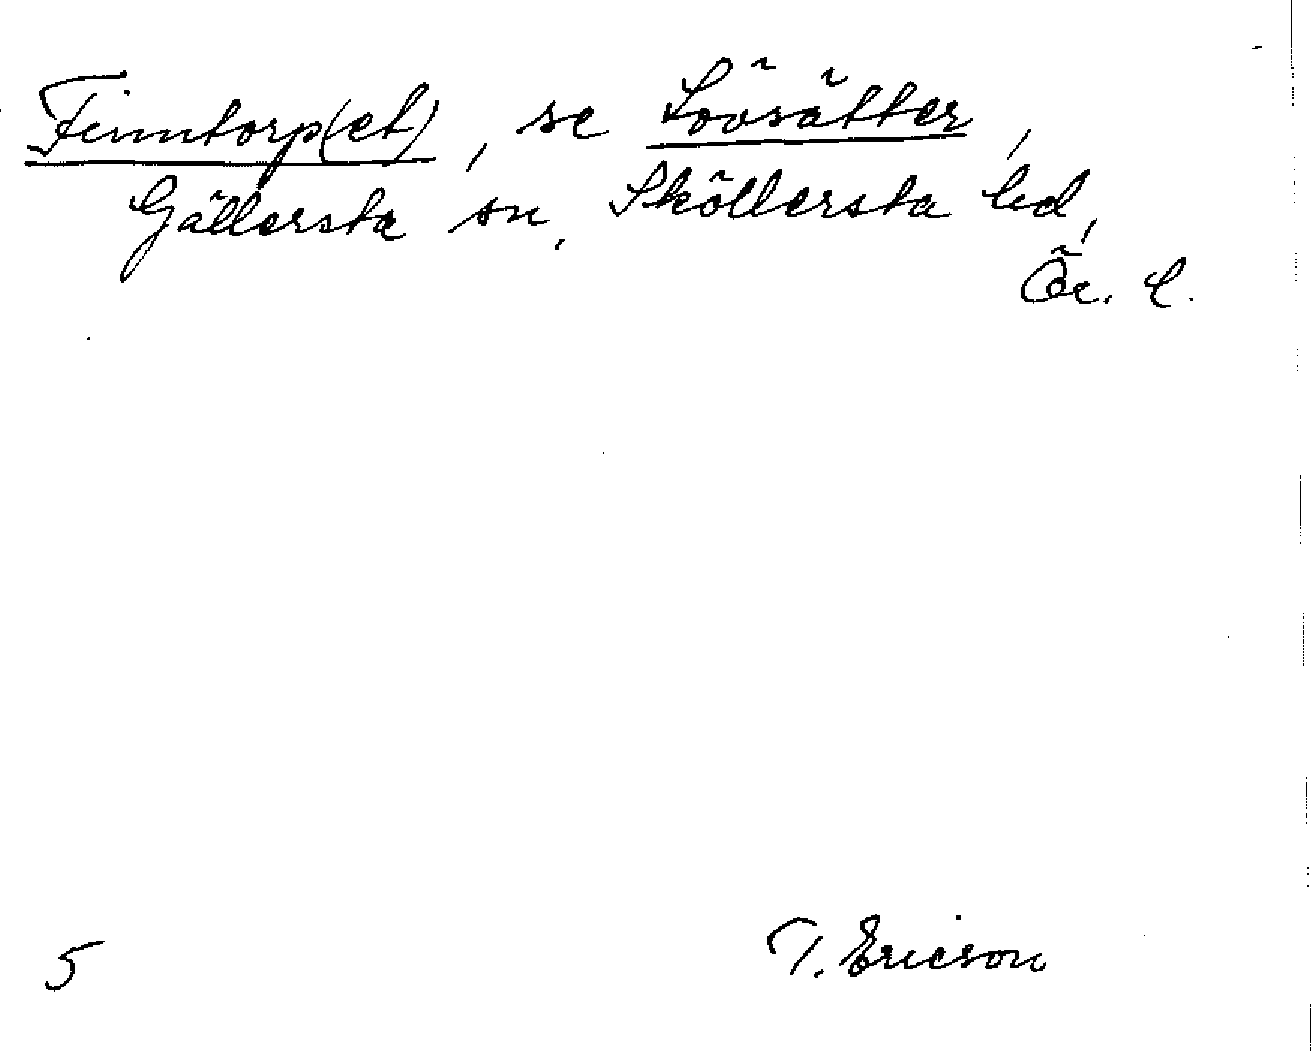 Finntorp(et), se Lövsätter,
Gällersta sn, Sköllersta hd,
Ör. l.
5
T. Ericson